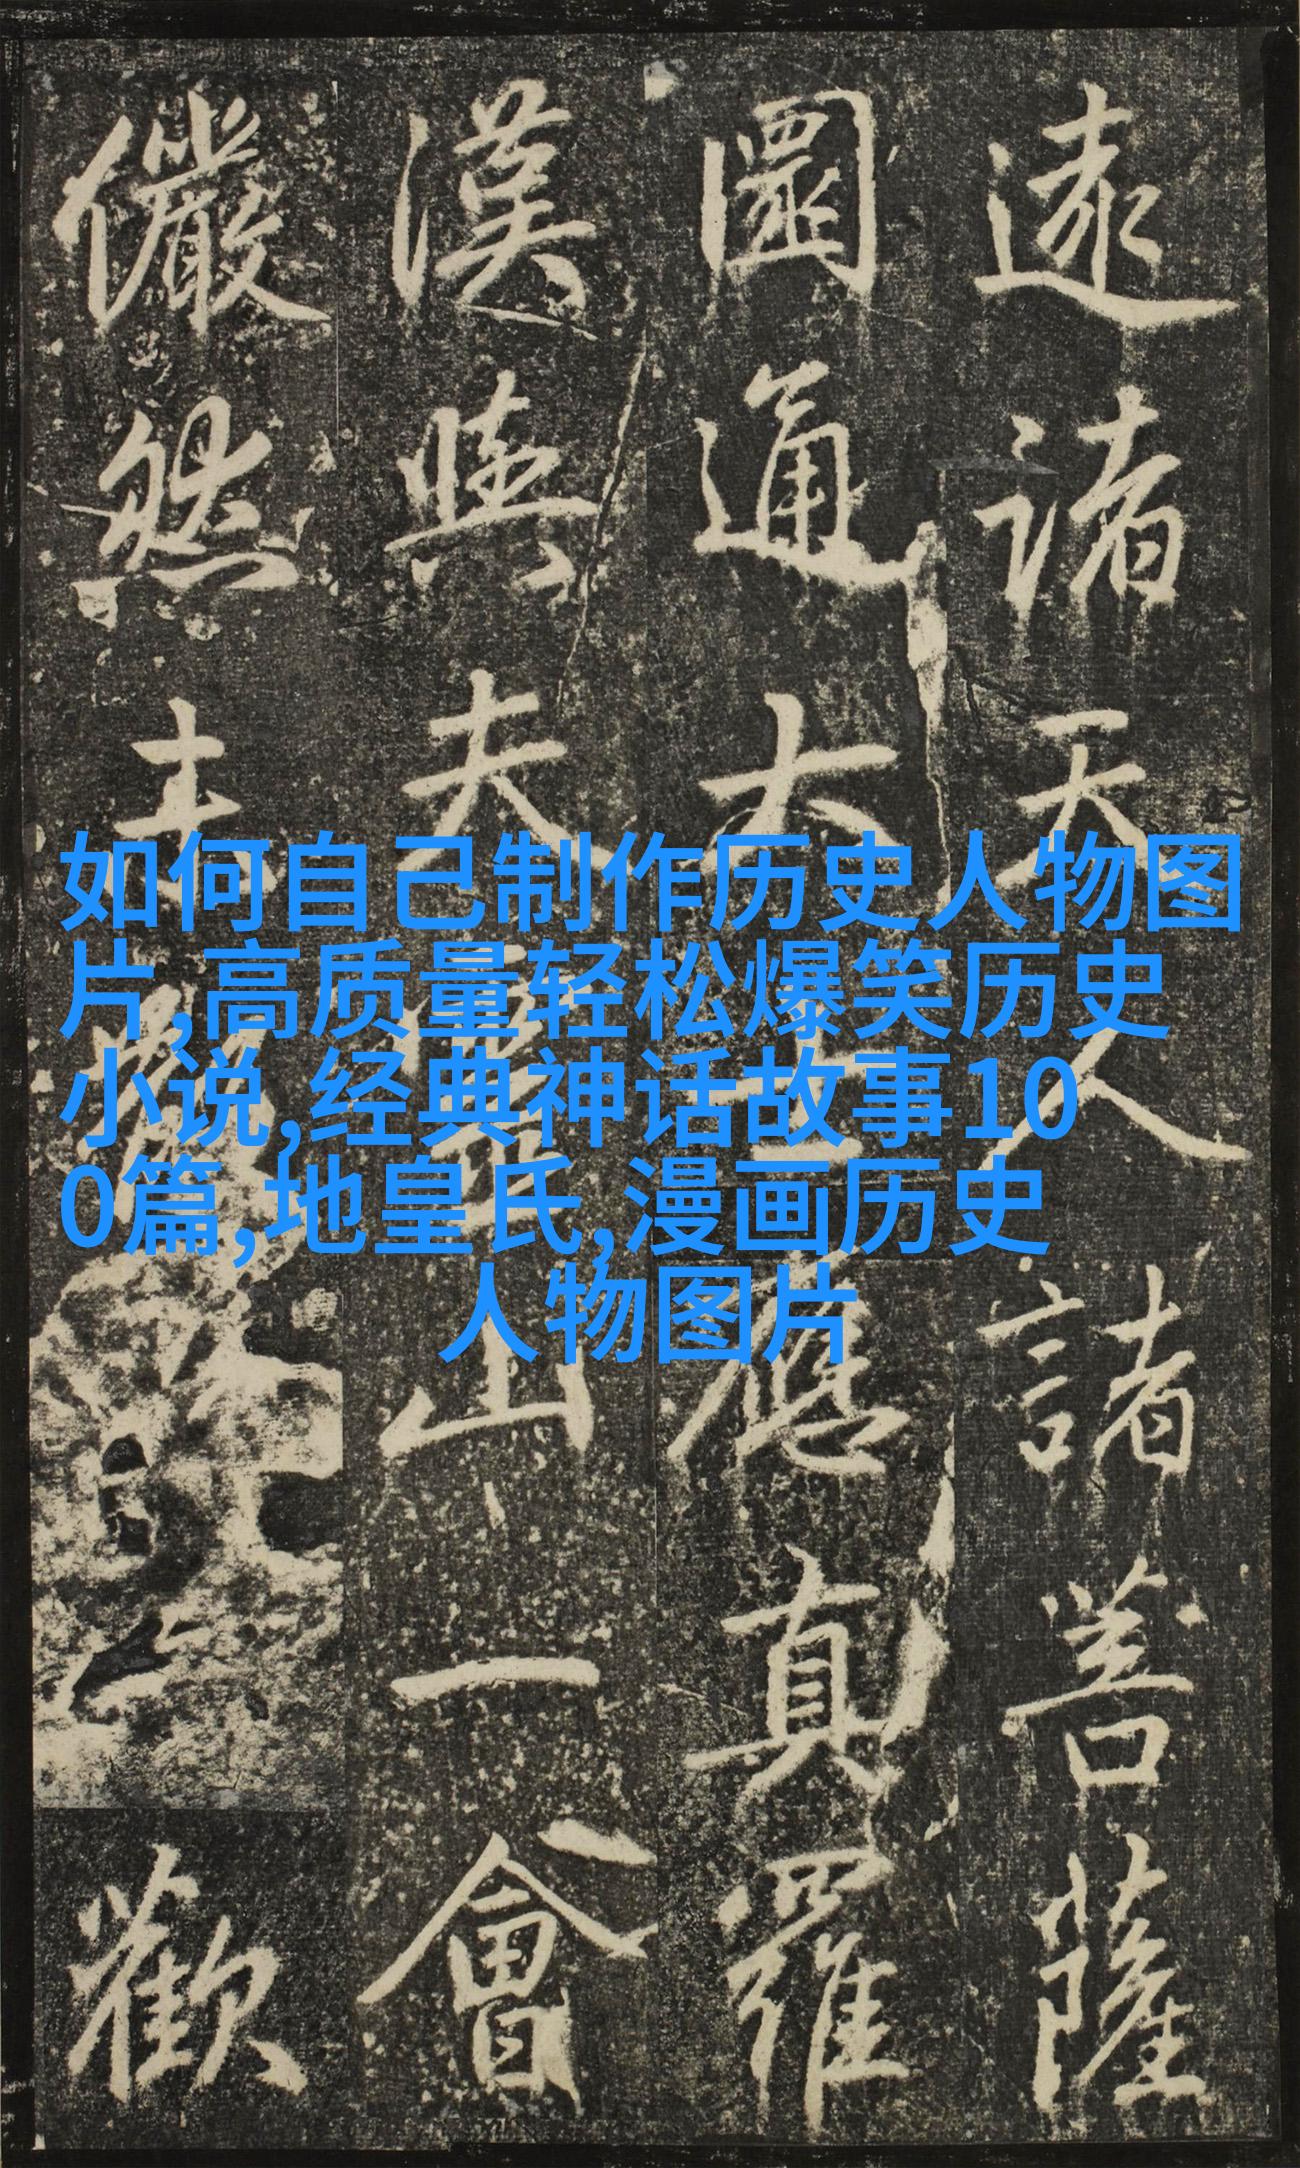 遠諸天人諸菩薩
圓通大士應真羅
漢與夫靈山一會
儼然未歡
如何自己制作历史人物图
片,高质量轻松爆笑历史
小说,经典神话故事10
0篇,地皇氏,漫画历史
人物图片